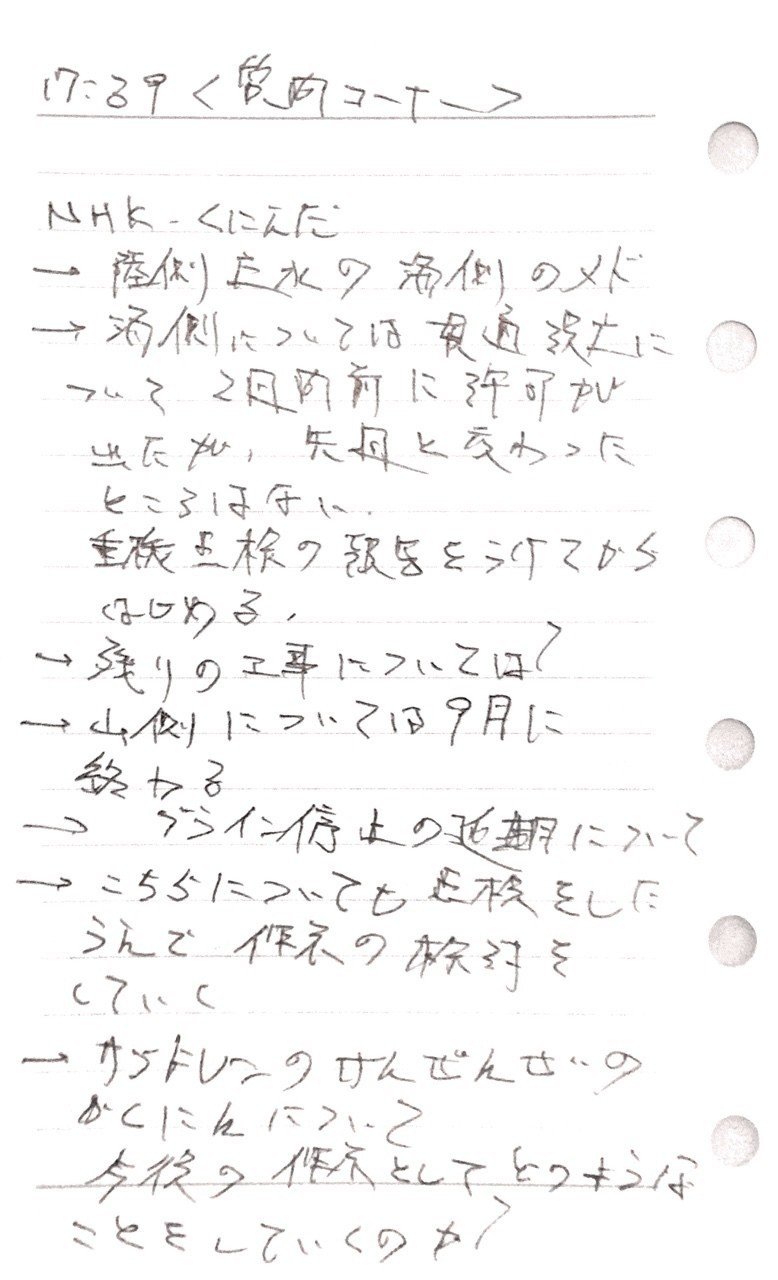 17:39 <質問コーナー>
NHK-くにえだ
→ 陸側止水の海側のメド
→ 海側については貫通
ついて 2日 前に許可が
出たが、先月と変わった
ところはない.
重機点検の報告をうけてから
はじめる.
→ 残りの工事については?
→ 山側については9月に
終わる
→ ブライン停止の延期について
→ こちらについても点検をした
うえで 作業の検討を
していく
→ サブドレンのけんぜんせいの
かくにんについて
今後の作業としてどのような
ことをしていくのか?